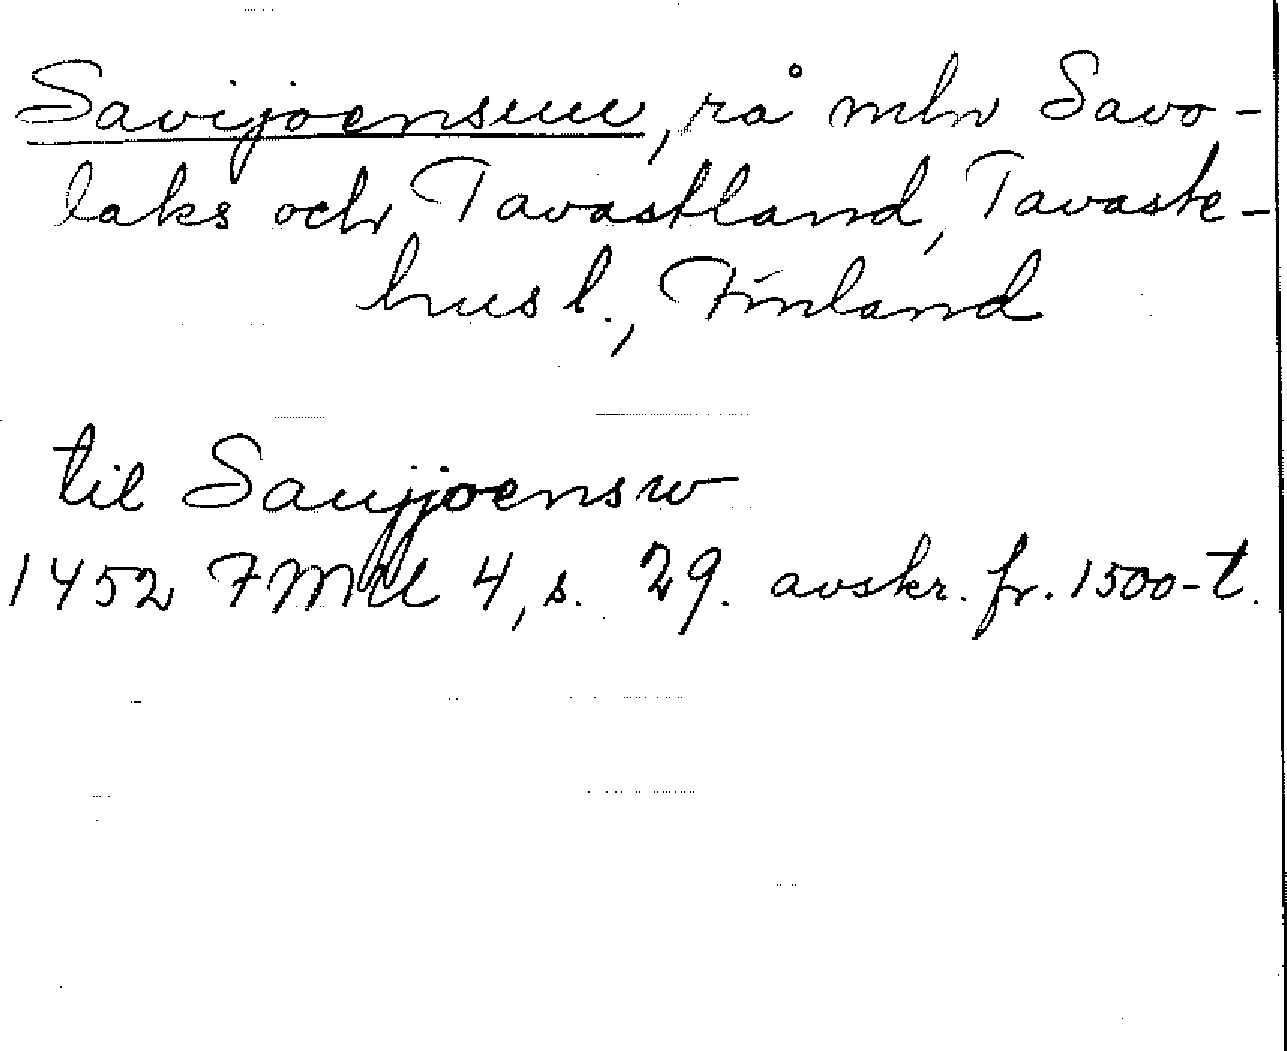 Savijoensuu, rå mln Savo-
laks och Tavastland, Tavaste-
hus l., Finland
til Saujjoensw
1452 FMU 4, s. 29. avskr. fr. 1500-t.